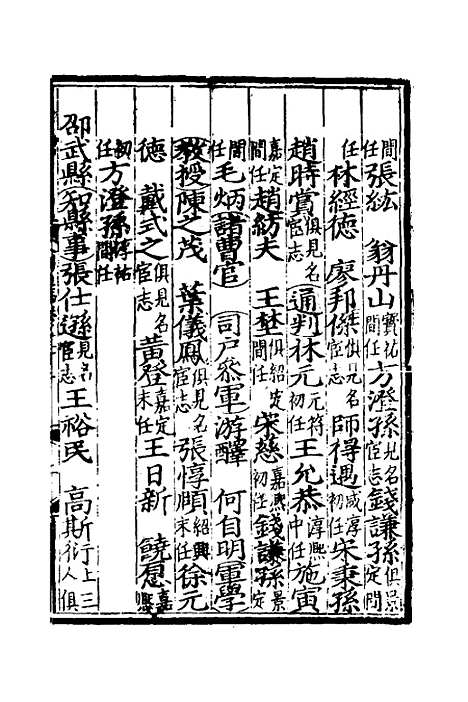 間任張紘　翁丹山寶祐間任方澄孫見名宦志錢謙孫俱景定間
任林經德　廖邦傑俱見名宦志師得遇咸淳初任宋秉孫
趙時賞俱見名宦志通判林元元符初任王允恭淳熙中任施寅
嘉定間任趙紡夫　王埜俱紹定間任　宋慈嘉熙初任錢謙孫景定
間任毛炳諸曹官　司戶叅軍游醳　何自明軍學
教授陳之茂　葉儀鳳俱見名宦志張惇頫紹興末任徐元
德　戴式之俱見名宦志黄登嘉定末任王日新　饒㥬嘉熙
初任方澄孫淳祐間任
邵武縣知縣事張仕遜見名宦志王裕民　高斯衍上三人俱